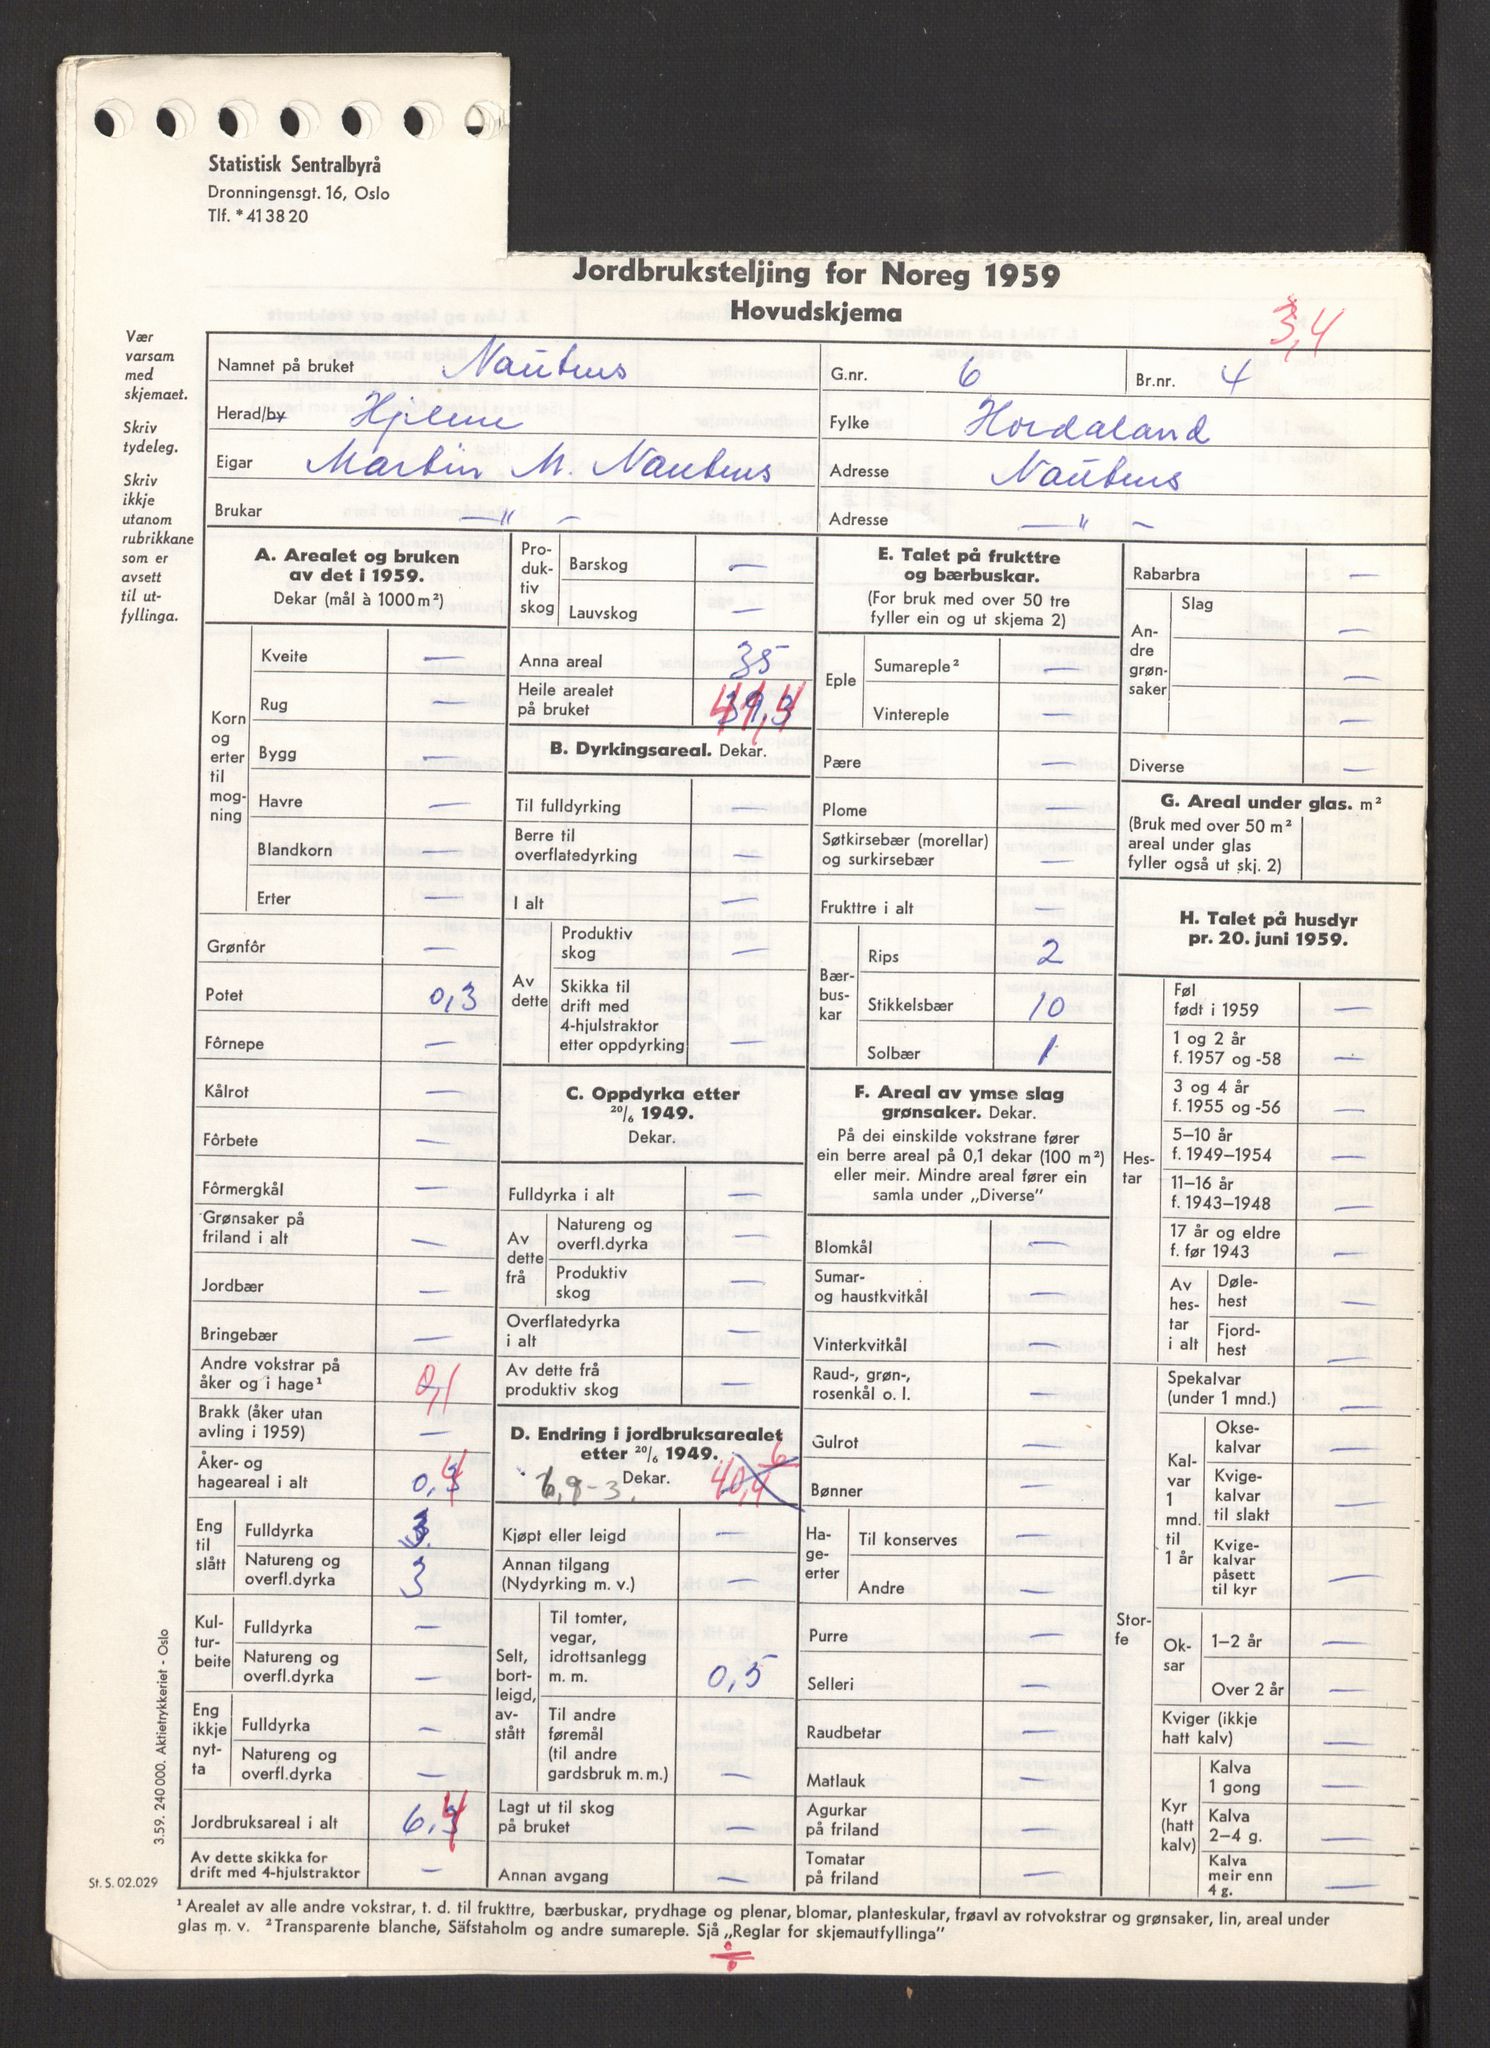 Statistisk Sentralbyrå
Dronningensgt. 16, Oslo
Tlf. *41 38 20
Jordbruksteljing for Noreg 1959
Hovudskjema
3,4
Vær
varsam
med
skjemaet.
Skriv
tydeleg.
Skriv
ikkje
utanom
rubrikkane
som er
avsett
til ut-
fyllinga.
Namnet på bruket Nautnes G.nr. 6 Br.nr. 4
Herad/by Hjelme Fylke Hordaland
Eigar Martin M. Nautnes Adresse Nautnes
Brukar —"— Adresse —"—
A. Arealet og bruken
av det i 1959.
Dekar (mål à 1000 m²)
Korn
og
erter
til
mog-
ning
Kveite —
Rug —
Bygg —
Havre —
Blandkorn —
Erter —
Grønfôr —
Potet 0,3
Fôrnepe —
Kålrot —
Fôrbete —
Fôrmergkål —
Grønsaker på
friland i alt —
Jordbær —
Bringebær —
Andre vokstrar på
åker og i hage¹ 0,1
Brakk (åker utan
avling i 1959) —
Åker- og
hageareal i alt 0,4
Eng
til
slått
Fulldyrka 3
Natureng og
overfl.dyrka 3
Kul-
tur-
beite
Fulldyrka —
Natureng og
overfl.dyrka —
Eng
ikkje
nyt-
ta
Fulldyrka —
Natureng og
overfl.dyrka —
Jordbruksareal i alt 6,4
Av dette skikka for
drift med 4-hjulstraktor —
Pro-
duk-
tiv
skog
Barskog —
Lauvskog —
Anna areal 35
Heile arealet
på bruket 39,3 41,4
B. Dyrkingsareal. Dekar.
Til fulldyrking —
Berre til
overflatedyrking —
I alt —
Av
dette
Produktiv
skog —
Skikka til
drift med
4-hjulstraktor
etter oppdyrking —
C. Oppdyrka etter
20/6 1949.
Dekar.
Fulldyrka i alt —
Av
dette
frå
Natureng og
overfl.dyrka —
Produktiv
skog —
Overflatedyrka
i alt —
Av dette frå
produktiv skog —
D. Endring i jordbruksarealet
etter 20/6 1949.
Dekar.
6,9-3.
Kjøpt eller leigd —
Annan tilgang
(Nydyrking m. v.) —
Selt,
bort-
leigd,
av-
stått
Til tomter,
vegar,
idrottsanlegg
m. m. 0,5
Til andre
føremål
(til andre
gardsbruk m. m.) —
Lagt ut til skog
på bruket —
Annan avgang —
E. Talet på frukttre
og bærbuskar.
(For bruk med over 50 tre
fyller ein og ut skjema 2)
Eple
Sumareple² —
Vintereple —
Pære —
Plome —
Søtkirsebær (morellar)
og surkirsebær —
Frukttre i alt —
Bær-
bus-
kar
Rips 2
Stikkelsbær 10
Solbær 1
F. Areal av ymse slag
grønsaker. Dekar.
På dei einskilde vokstrane fører
ein berre areal på 0,1 dekar (100 m²)
eller meir. Mindre areal fører ein
samla under „Diverse”
Blomkål —
Sumar-
og haustkvitkål —
Vinterkvitkål —
Raud-, grøn-,
rosenkål o. l. —
Gulrot —
Bønner —
Ha-
ge-
erter
Til konserves —
Andre —
Purre —
Selleri —
Raudbetar —
Matlauk —
Agurkar
på friland —
Tomatar
på friland —
Rabarbra —
An-
dre
grøn-
saker
Slag
—
—
—
Diverse —
G. Areal under glas. m²
(Bruk med over 50 m²
areal under glas
fyller også ut skj. 2)
H. Talet på husdyr
pr. 20. juni 1959.
Hes-
tar
Føl
født i 1959 —
1 og 2 år
f. 1957 og -58 —
3 og 4 år
f. 1955 og -56 —
5–10 år
f. 1949–1954 —
11–16 år
f. 1943–1948 —
17 år og eldre
f. før 1943 —
Av
hes-
tar
i alt
Døle-
hest —
Fjord-
hest —
Stor-
fe
Spekalvar
(under 1 mnd.) —
Kal-
var
1
mnd.
til
1 år
Okse-
kalvar —
Kvige-
kalvar
til slakt —
Kvige-
kalvar
påsett
til kyr —
Ok-
sar
1–2 år —
Over 2 år —
Kviger (ikkje
hatt kalv) —
Kyr
(hatt
kalv)
Kalva
1 gong —
Kalva
2–4 g. —
Kalva
meir enn
4 g. —
3.59. 240 000. Aktietrykkeriet - Oslo
St. S. 02.029
¹ Arealet av alle andre vokstrar, t. d. til frukttre, bærbuskar, prydhage og plenar, blomar, planteskular, frøavl av rotvokstrar og grønsaker, lin, areal under
glas m. v. ² Transparente blanche, Säfstaholm og andre sumareple. Sjå „Reglar for skjemautfyllinga”